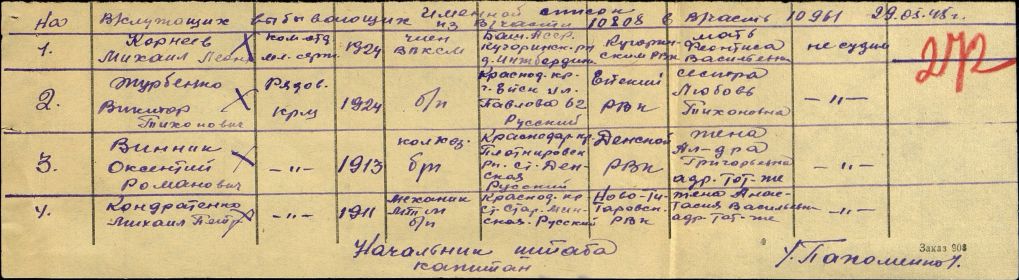 Именной список
На в/служащих выбывающих из в/части 10808 в в/часть 10961 29.03.45 г.
1. Корнеев Михаил Леон. ком. отд. мл. серж. 1924 член ВЛКСМ Баш. АССР Кугарчинск. рн д. Кугарчин-ским РВК мать Леонтиса Васильевна не судим
272
2. Журбенко Виктор Тихонович Рядов. крм 1924 б/п Краснод. кр. г. Ейск ул. Павлова 62 Русский Ейский РВК сестра Любовь Тихоновна —"—
3. Винник Оксентий Романович —"— 1913 колхоз. б/п Краснодар кр. Плотнировск рн. ст. Ден-ская Русский Денской РВК жена Ал-дра Григорьевна адр. тот-же —"—
4. Кондратенко Михаил Петр. —"— 1911 механик МТМ б/п Краснод. кр. ст. Стар. Мин-ская. Русский Ново-Ти-таровск. РВК жена Анас-тасия Васильевн. адр. тот-же —"—
Начальник штаба
капитан
/Пахоменко/.
Заказ 908